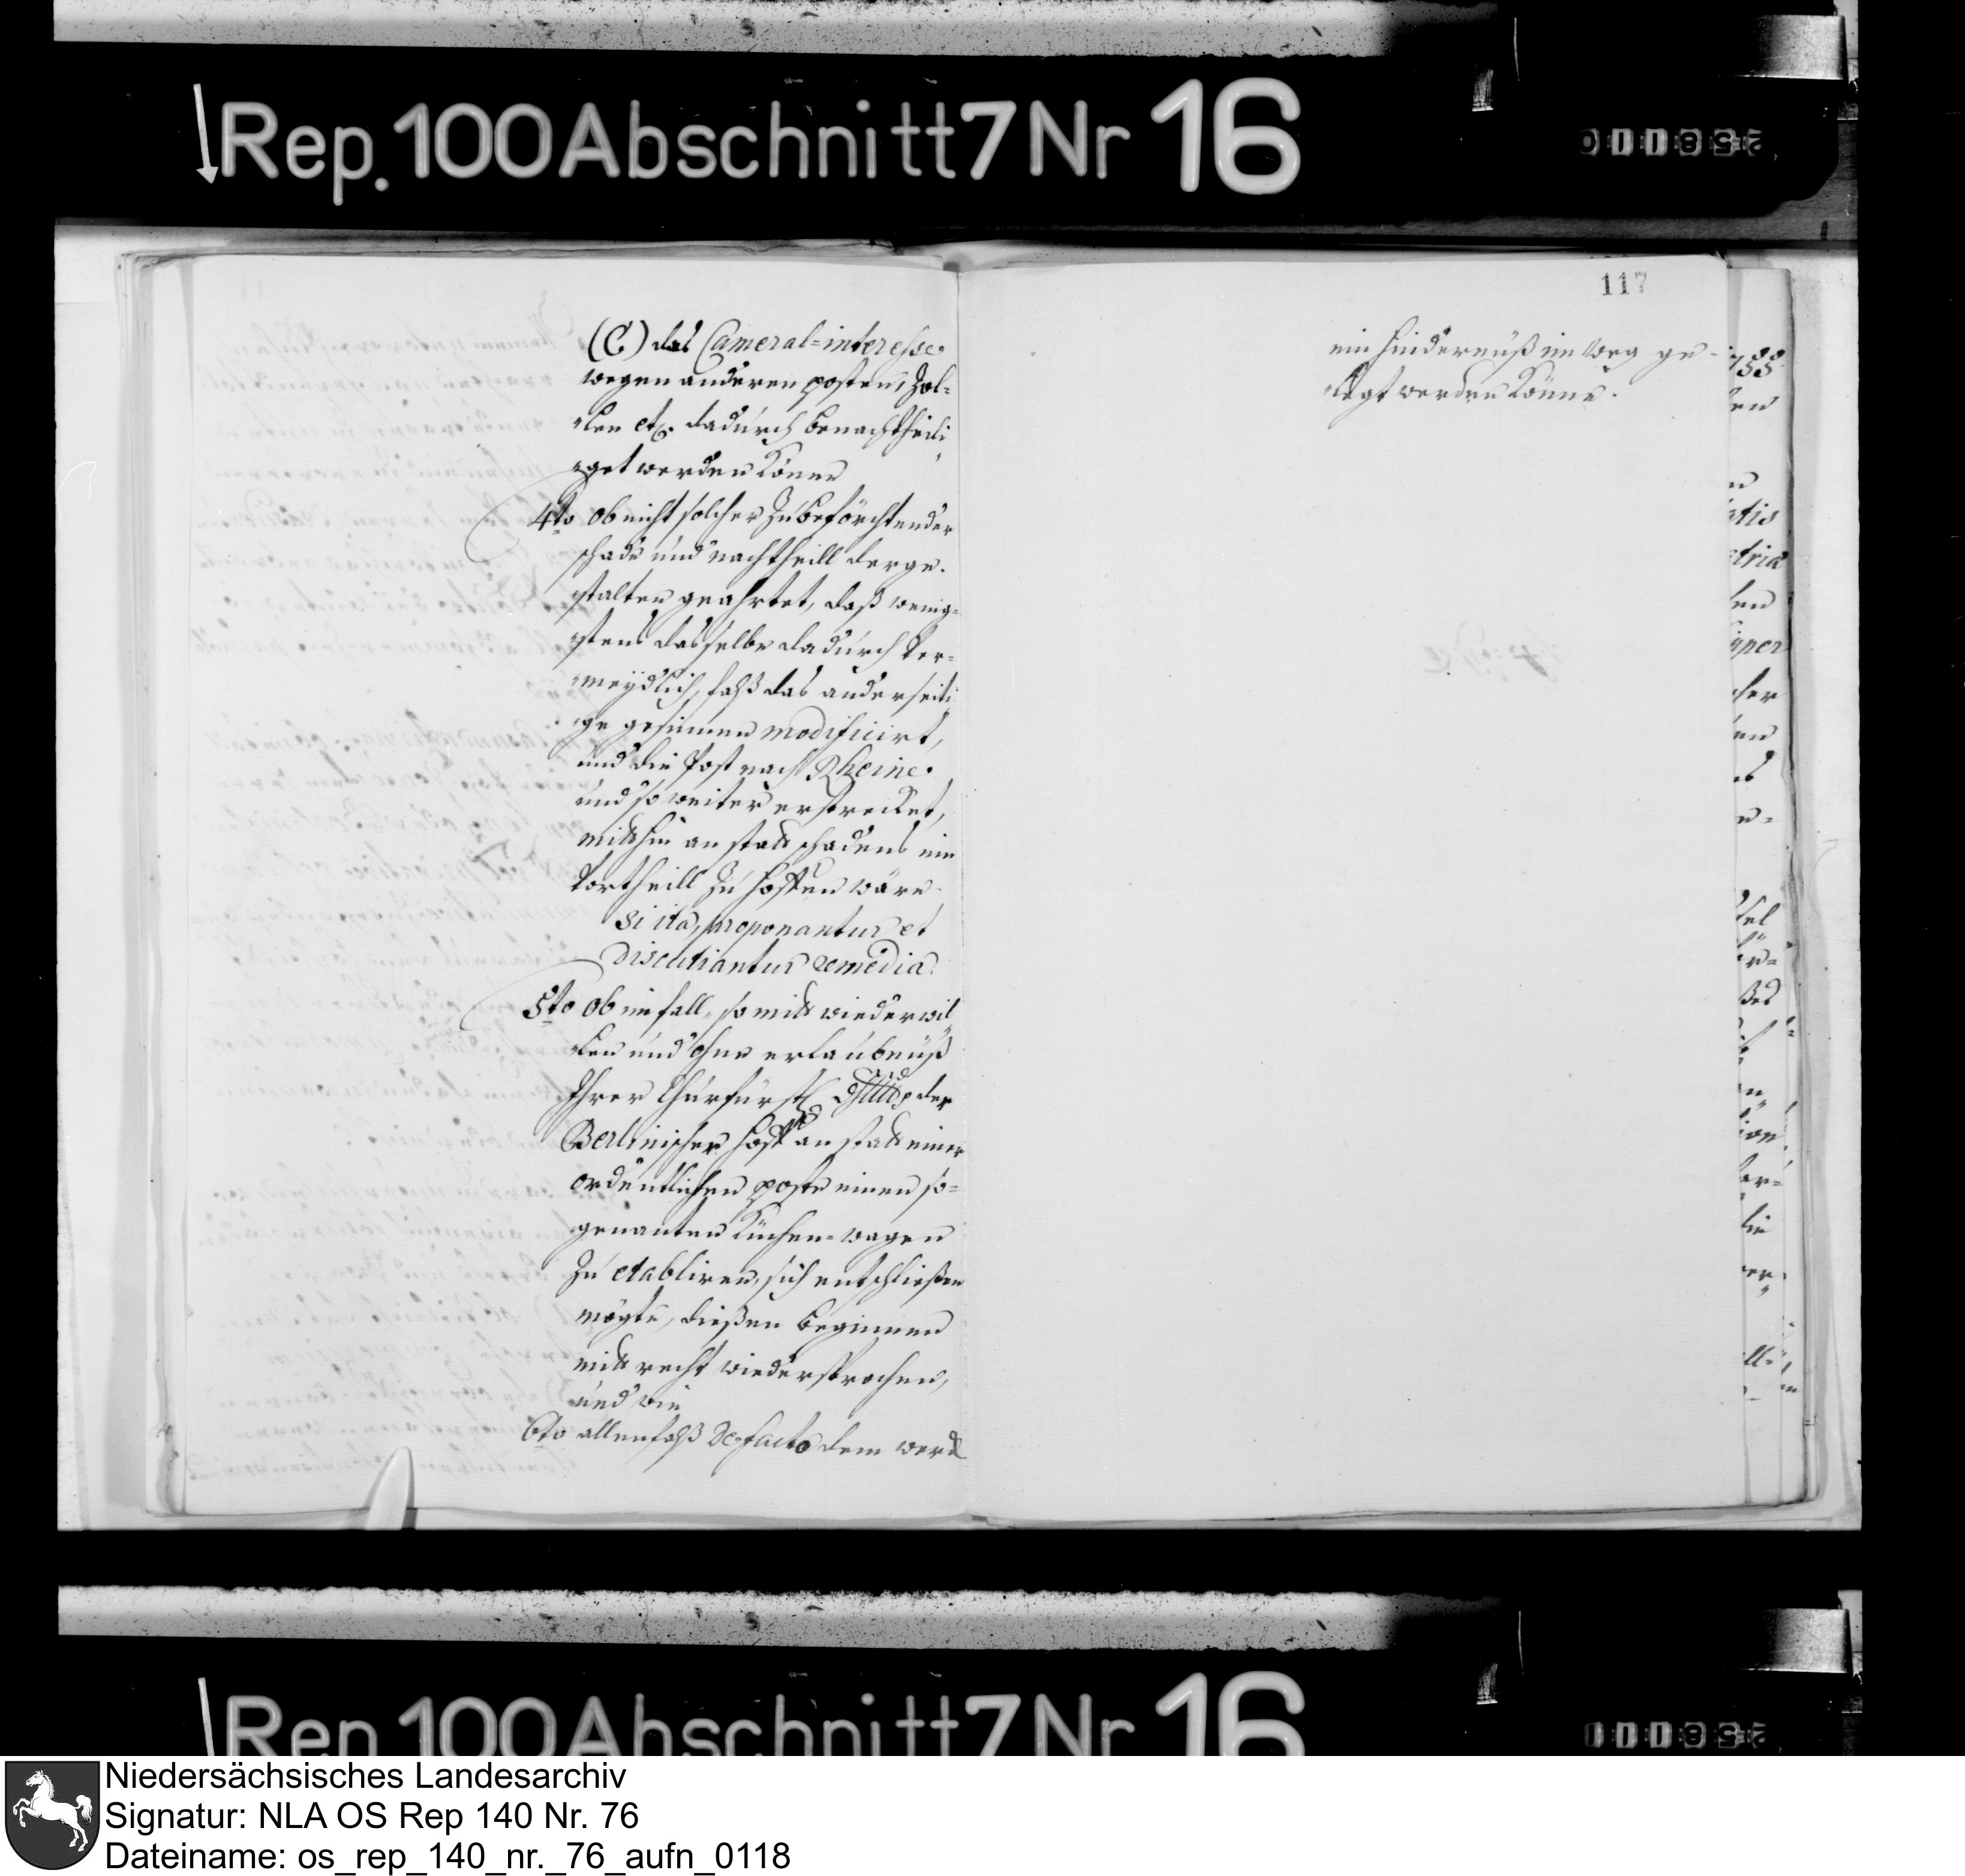 Rep. 100 Abschnitt 7 Nr 16
117
(C) das Cameral=interesse
wegen anderen posten, Zol=
len etc. dadurch benachtheili
get werden könne
4to ob nicht solcher zu beförchtender
schade und nachtheill derge.
stalten geahrtet, daß wenig=
stens dasselbe dadurch ver=
meydlich, falß das anderseiti
ge gesinnen modificirt,
und die Post nach Rheine
und so weiter erstrecket,
mithin anstatt schadens ein
Vortheill zu hoffen wäre
si ita, proponantur et
discutiantur remedia.
5to ob im fall, so mit wiederwil
len und ohne erlaubnüß
Ihrer Churfürstl der
Berlinischer Hoff anstatt einer
ordentlichen poste einen so=
genanten Küchen=wagen
zu etabliren, sich entschließen
mögte, dießen beginnen
mit recht wiedersprochen,
und wie
6to allenfalß de facto dem werck
ein hindernüß im weg ge=
legt werden könne.
Rep. 100 Abschnitt 7 Nr 16
Niedersächsisches Landesarchiv
Signatur: NLA OS Rep 140 Nr. 76
Dateiname: os_rep_140_nr._76_aufn_0118